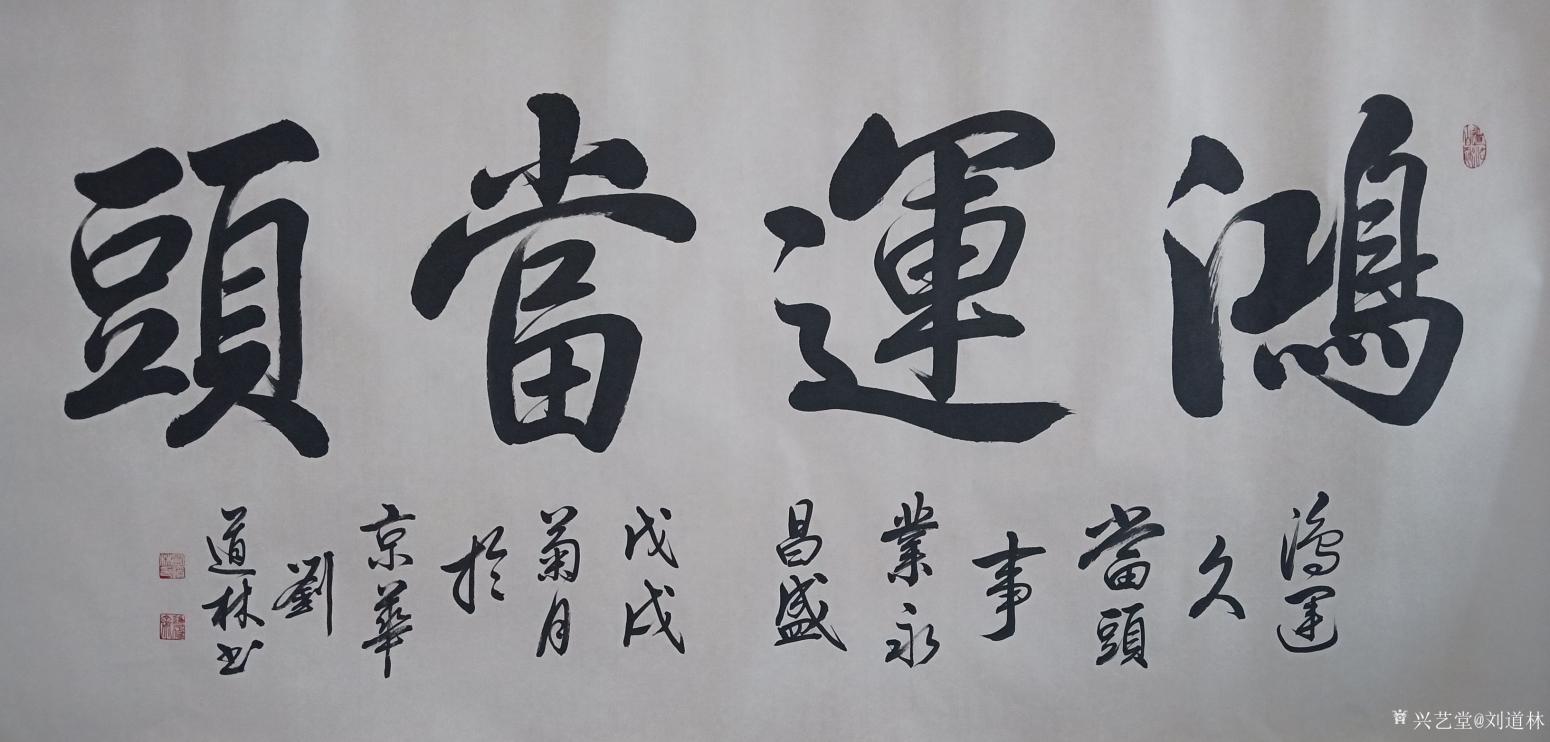 鴻運當頭
鴻運
久
當頭
事
業永
昌盛
戊戌
菊月
於
京華
劉
道林书
兴艺堂@刘道林